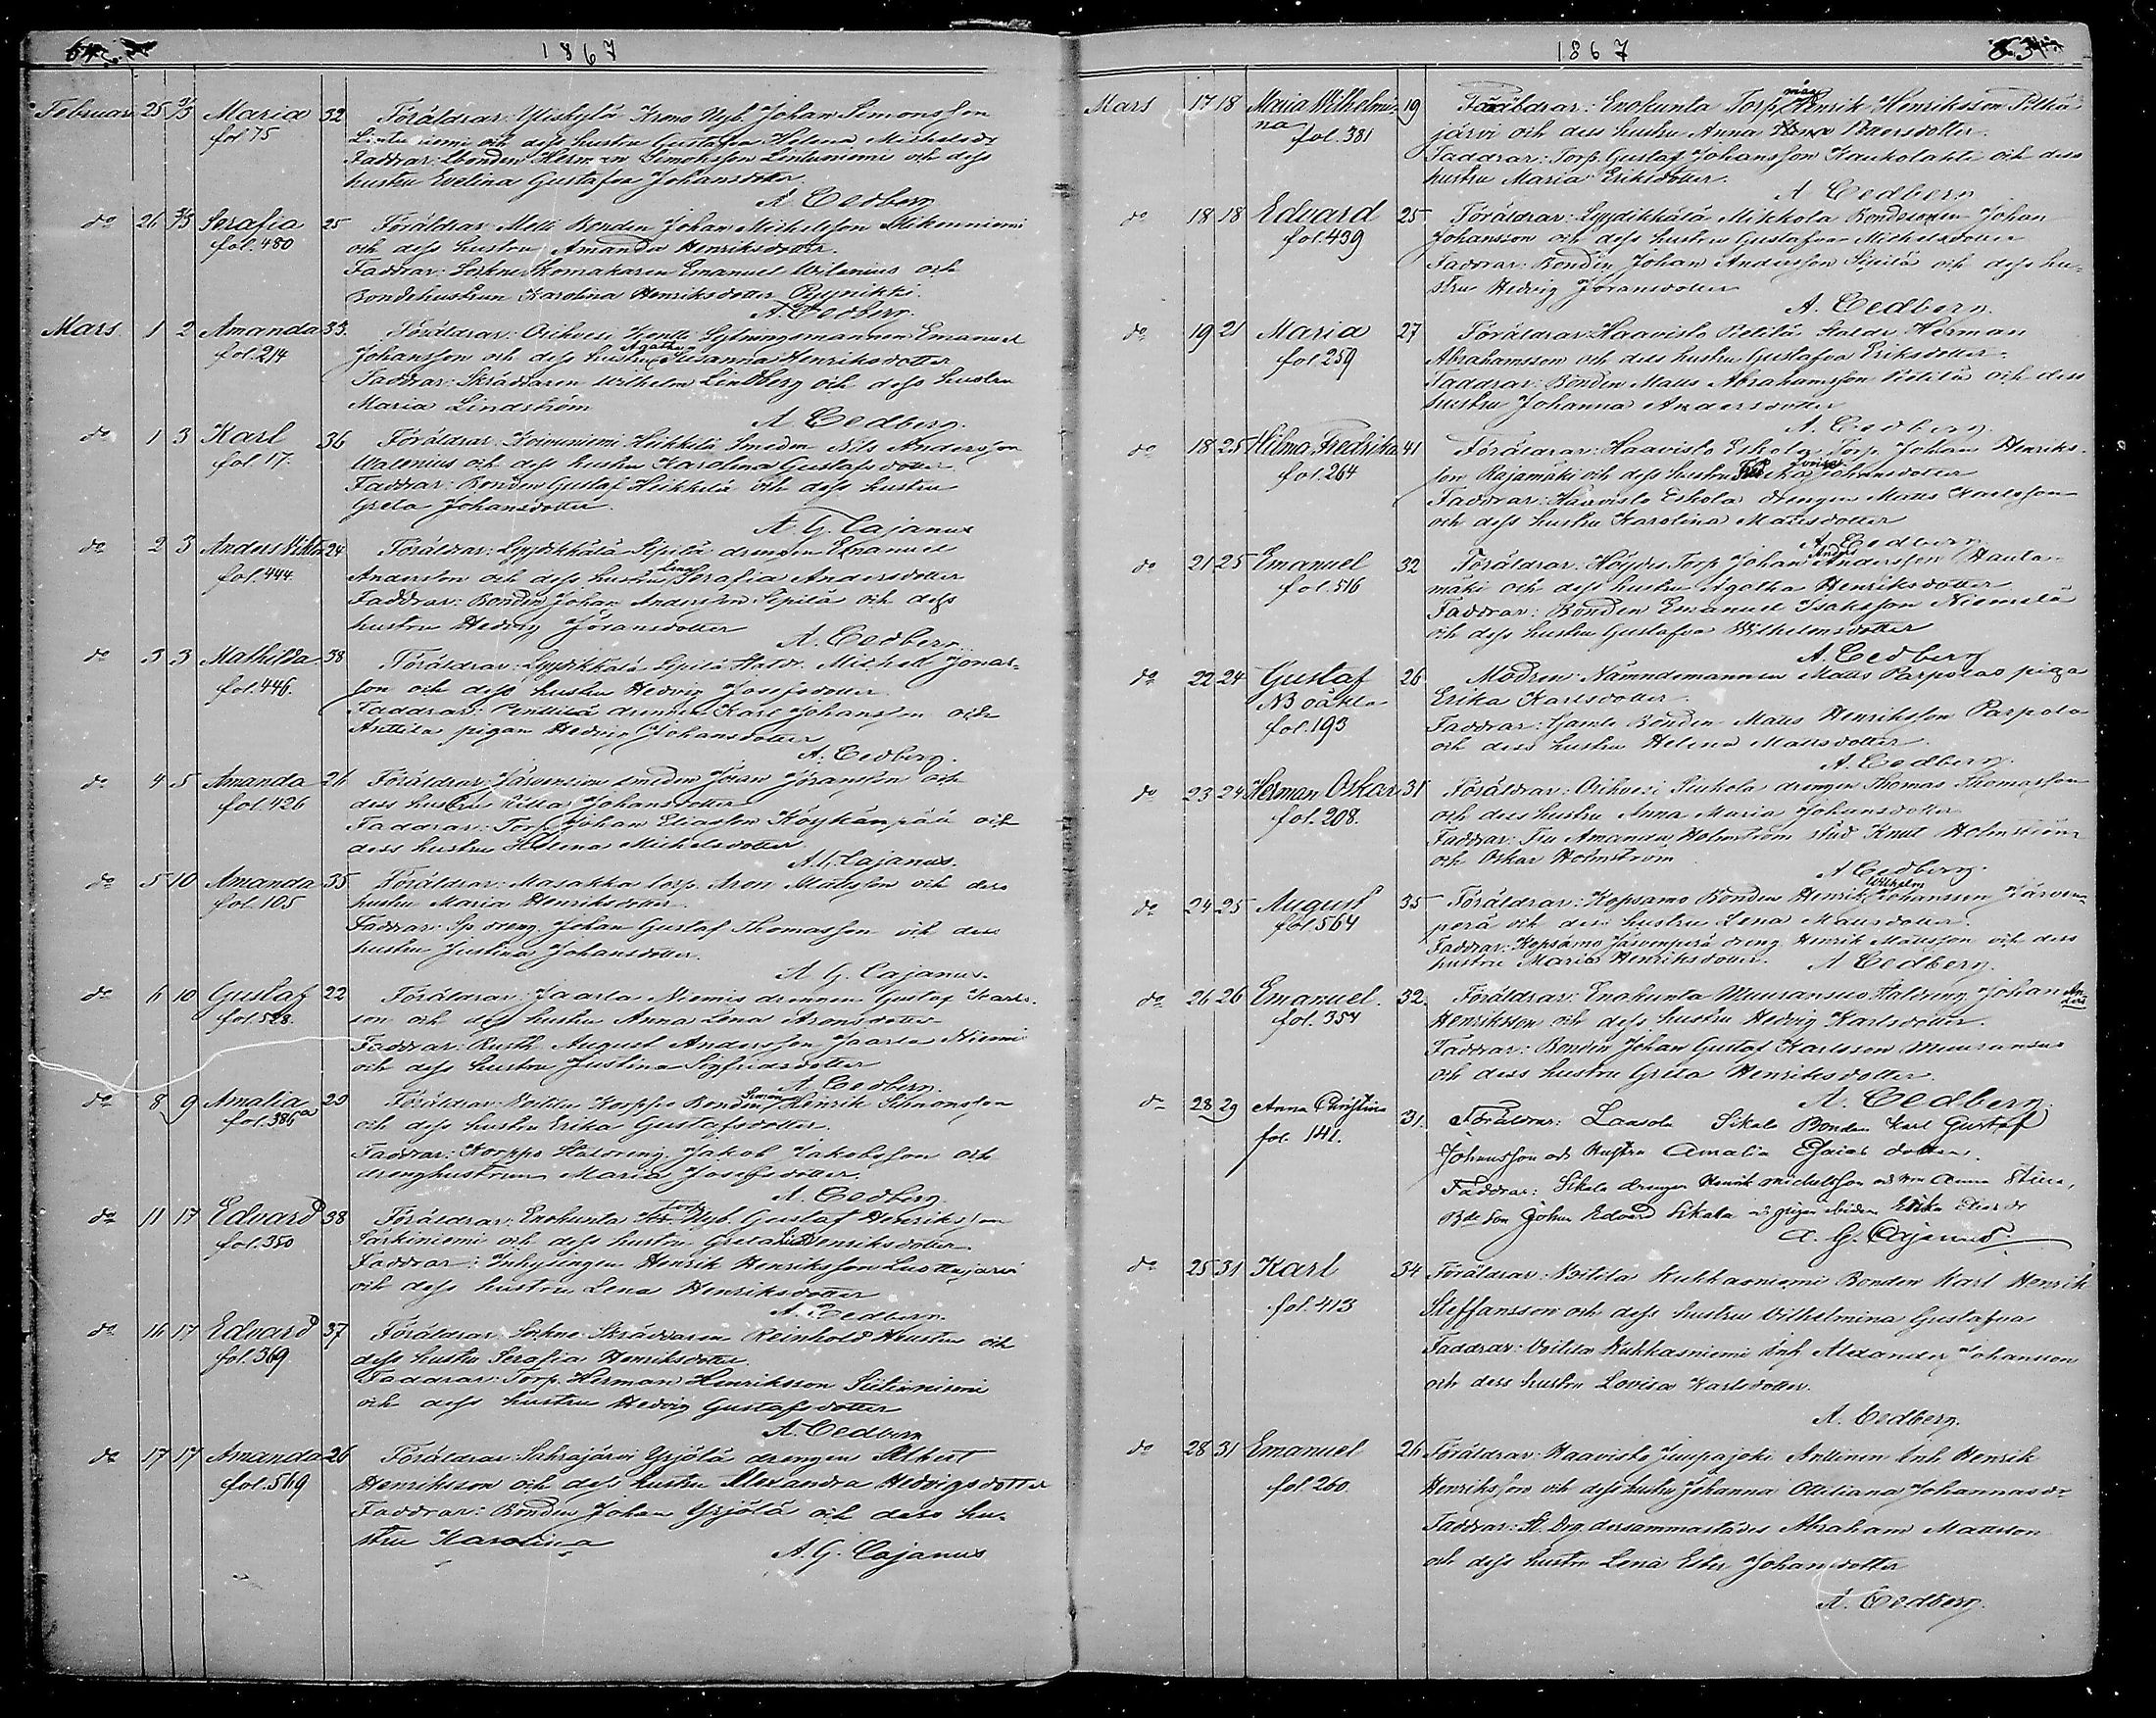 1867
Februar 25 2/3 Maria 32 Föräldrar: Yliskylä Kromo Nyb. Johan Simonsson
fol 75 Lintuniemi och dess hustru Gustafva Helena Michelsdr
Faddrar: Lbonden Herman Simonsson Lintuniemi och dess
hustru Evelina Gustafva Johansdotter
A. Cedberg
do 26 3/3 Serafia 25 Föräldrar: Bonden Johan Michelsson Mikonniemi
fol. 480 och dess hustru Amanda Henriksdotter.
Faddrar: Sockne Skomakaren Emanuel Wilenius och
Bondehustrun Karolina Henriksdotter Pyynikki.
A. Cedberg.
Mars 1 2 Amanda 33. Föräldrar: Orihvesi Sytningsmannen Emanuel
fol. 214 Johansson och dess hustru Agatha Susanna Henriksdotter
Faddrar: Skräddaren Wilhelm Lindberg och dess hustru
Maria Lindström
A. Cedberg.
do 1 3 Karl 36 Föräldrar: Koivuniemi Heikkilä Smeden Nils Andersson
fol. 17. Walenius och dess hustru Karolina Gustafsdotter
Faddrar: Bonden Gustaf Heikkilä och dess hustru
Greta Johansdotter.
A. G. Cajanus
do 2 3 Anders Viktor 24 Föräldrar: Lyydikkälä Sipilä drengen Emanuel
fol. 444. Andersson och dess hustru Lena Serafia Andersdotter
Faddrar: Bonden Johan Andersson Sipilä och dess
hustru Hedvig Jöransdotter
A. Cedberg.
do 3 3 Mathilda 38 Föräldrar: Lyydikkälä Sipilä Staldr. Michel Jonas-
fol. 446. son och dess hustru Hedvig Josefsdotter
Faddrar: Penttilä drengen Karl Johansson och
Anttila pigan Hedvig Johansdotter
A. Cedberg.
do 4 5 Amanda 26 Föräldrar: Järvensivu smeden Jöran Jöransson och
fol. 426 dess hustru Ulla Johansdotter
Faddrar: Torp. Johan Eliasson Köykänpää och
dess hustru Helena Michelsdotter
A. G. Cajanus.
do 5 10 Amanda 35 Föräldrar: Masakka torp. Aron Mattsson och dess
fol. 105 hustru Maria Henriksdotter
Faddrar: Sp. dreng. Johan Gustaf Thomasson och dess
hustru Justina Johansdotter.
A. G. Cajanus.
do 6 10 Gustaf 22 Föräldrar: Jaarla Niemis drengen Gustaf Karls-
fol. 528. son och dess hustru Anna Lena Aronsdotter
Faddrar: Rusth. August Andersson Jaarla Niemi
och dess hustru Justina Sigfridsdotter
A. Cedberg.
do 8 9 Amalia 29 Föräldrar: Korppo Bonden Simon Henrik Simonsson
fol. 386a och dess hustru Erika Gustafsdotter.
Faddrar: Korppo Staldreng. Jakob Jakobsson och
drenghustrun Maria Josefsdotter.
A. Cedberg.
do 11 17 Edvard 38 Föräldrar: Enokunta Nyb. Gustaf Henriksson
fol. 350 Särkiniemi och dess hustru Greta Lisa Henriksdotter
Faddrar: Inhysingen Henrik Henriksson Luottujärvi
och dess hustru Lena Henriksdotter
A. Cedberg.
do 16 17 Edvard 37 Föräldrar: Sockne Skräddaren Reinhold och
fol. 369 dess hustru Serafia Henriksdotter
Faddrar: Torp. Herman Henriksson
och dess hustru Hedvig Gustafsdotter
A. Cedberg
do 17 17 Amanda 26 Föräldrar: Sahrajärvi Yrjölä drengen Albert
fol. 569 Henriksson och dess hustru Alexandra Hedvigsdotter
Faddrar: Bonden Johan Yrjölä och dess hu-
stru Karolina
A. G. Cajanus
1867
Mars 17 18 Maria Wilhelmi- 19 Föräldrar: Enokunta Torp. Henrik Henriksson Pitkä-
na fol. 381 järvi och dess hustru Anna
Faddrar: Torp. Gustaf Johansson Kaukolahti och dess
hustru Maria Eriksdotter.
A. Cedberg
do 18 18 Edvard 25 Föräldrar: Lyydikkälä Mikkola Bondesonen Johan
fol. 439 Johansson och dess hustru Gustafva Michelsdotter
Faddrar: Bonden Johan Andersson Sipilä och dess hu-
stru Hedvig Jöransdotter
A. Cedberg.
do 19 21 Maria 27 Föräldrar: Haavisto Pietilä Staldr. Herman
fol 259 Abrahamsson och dess hustru Gustafva Eriksdotter.
Faddrar: Bonden Matts Abrahamsson Pietilä och dess
hustru Johanna Andersdotter
A. Cedberg.
do 18 25 Hilma Fredrika 41 Föräldrar: Haavisto Eskola Torp. Johan Henriks-
fol. 264 son Rajamäki och dess hustru Johansdotter
Faddrar: Haavisto Eskola drengen Matts Karlsson
och dess hustru Karolina Mattsdotter
A. Cedberg.
do 21 25 Emanuel 32 Föräldrar: Torp. Johan Anders Andersson Hauta-
fol. 516 mäki och dess hustru Agatha Henriksdotter
Faddrar: Bonden Emanuel Isaksson Niemelä
och dess hustru Gustafva Wilhelmsdotter
A. Cedberg
do 22 24 Gustaf 26 Modren: Nämndemannen Matts Parpolas piga
NB oäkta Erika Karlsdotter.
fol. 193 Faddrar: Gamla Bonden Matts Henriksson Parpola
och dess hustru Helena Mattsdotter.
A. Cedberg.
do 23 24 Herman Oskar 31 Föräldrar: Orihvesi drengen Thomas Thomasson
fol. 208. och dess hustru Anna Maria Johansdotter
Faddrar: Fru Amanda Holmström stud Knut Holmström
och Oskar Holmström
A. Cedberg.
do 24 25 August 35 Föräldrar: Kopsamo Bonden Henrik Wilhelm Johansson Järven-
fol 564 perä och dess hustru Lena Mattsdotter.
Faddrar: Kopsamo Järvenperä dreng Henrik Mattsson och dess
hustru Maria Henriksdotter.
A. Cedberg.
do 26 26 Emanuel. 32. Föräldrar: Enokunta Muuransuo Staldreng. Johan An-
ders
fol. 354 Henriksson och dess hustru Hedvig Karlsdotter.
Faddrar: Bonden Johan Gustaf Karlsson Muuransuo
och dess hustru Greta Henriksdotter.
A. Cedberg.
do 28 29 Anna Christina 31. Föräldrar: Laasola Sikala Bonden Karl Gustaf
fol. 141. Johansson och Hustru Amalia Esaias dotter.
Faddrar: Sikala drengen Henrik Michelsson och Anna Stina,
Bde Son Johan Edvard Sikala
A. G. Cajanus.
do 25 31 Karl 34 Föräldrar: Voitila Kukkasniemi Bonden Karl Henrik
fol. 413 Steffansson och dess hustru Vilhelmina Gustafva
Faddrar: Voitila Kukkasniemi inh Alexander Johansson
och dess hustru Lovisa Karlsdotter.
A. Cedberg.
do 28 31 Emanuel 26 Föräldrar: Haavisto Anttinen inh Henrik
fol. 260. Henriksson och dess hustru Johanna Ottiliana
Faddrar: St. Drg. dersammastädes Abraham Mattsson
och dess hustru Lena Ester Johansdotter
A. Cedberg.